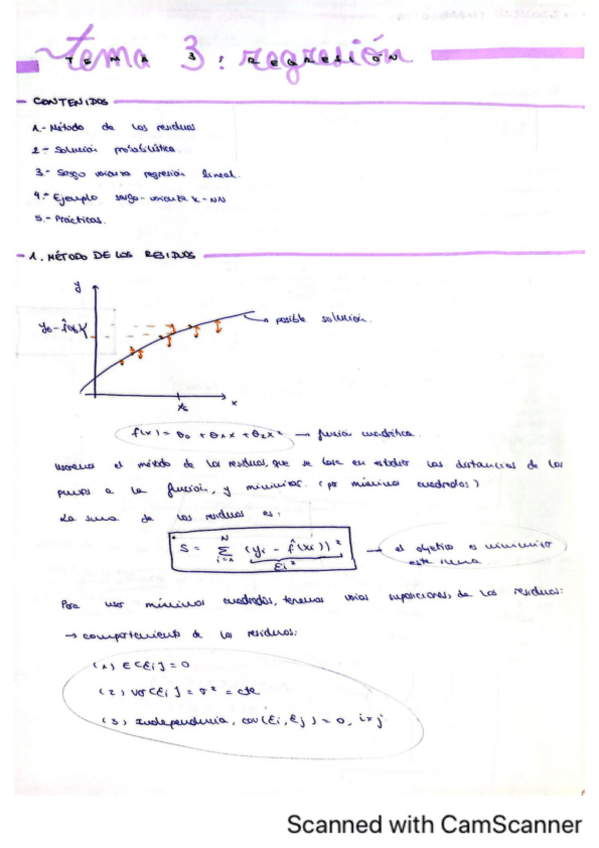 tema 3: regresión
TEMA 3: REGRESIÓN
CONTENIDOS
1.- Método de los residuos
2.- Solución probabilística
3.- Sesgo varianza regresión lineal.
4.- Ejemplo sesgo-varianza K-NN
5.- Prácticas.
1. MÉTODO DE LOS RESIDUOS
y
posible solución.
x₆
x
f(x) = θ₀ + θ₁x + θ₂x² → función cuadrática.
Usaremos el método de los residuos, que se basa en estudiar las distancias de los
puntos a la función, y minimizar. (por mínimos cuadrados)
La suma de los residuos es:
S = Σ i=1 N (yi - f̂(xi))² → el objetivo es minimizar
εi² esta suma.
Para usar mínimos cuadrados, tenemos varias suposiciones, de los residuos:
→ comportamiento de los residuos:
(1) E[εi] = 0
(2) var[εi] = σ² = cte
(3) Independencia, cov(εi, εj) = 0, i≠j
Scanned with CamScanner